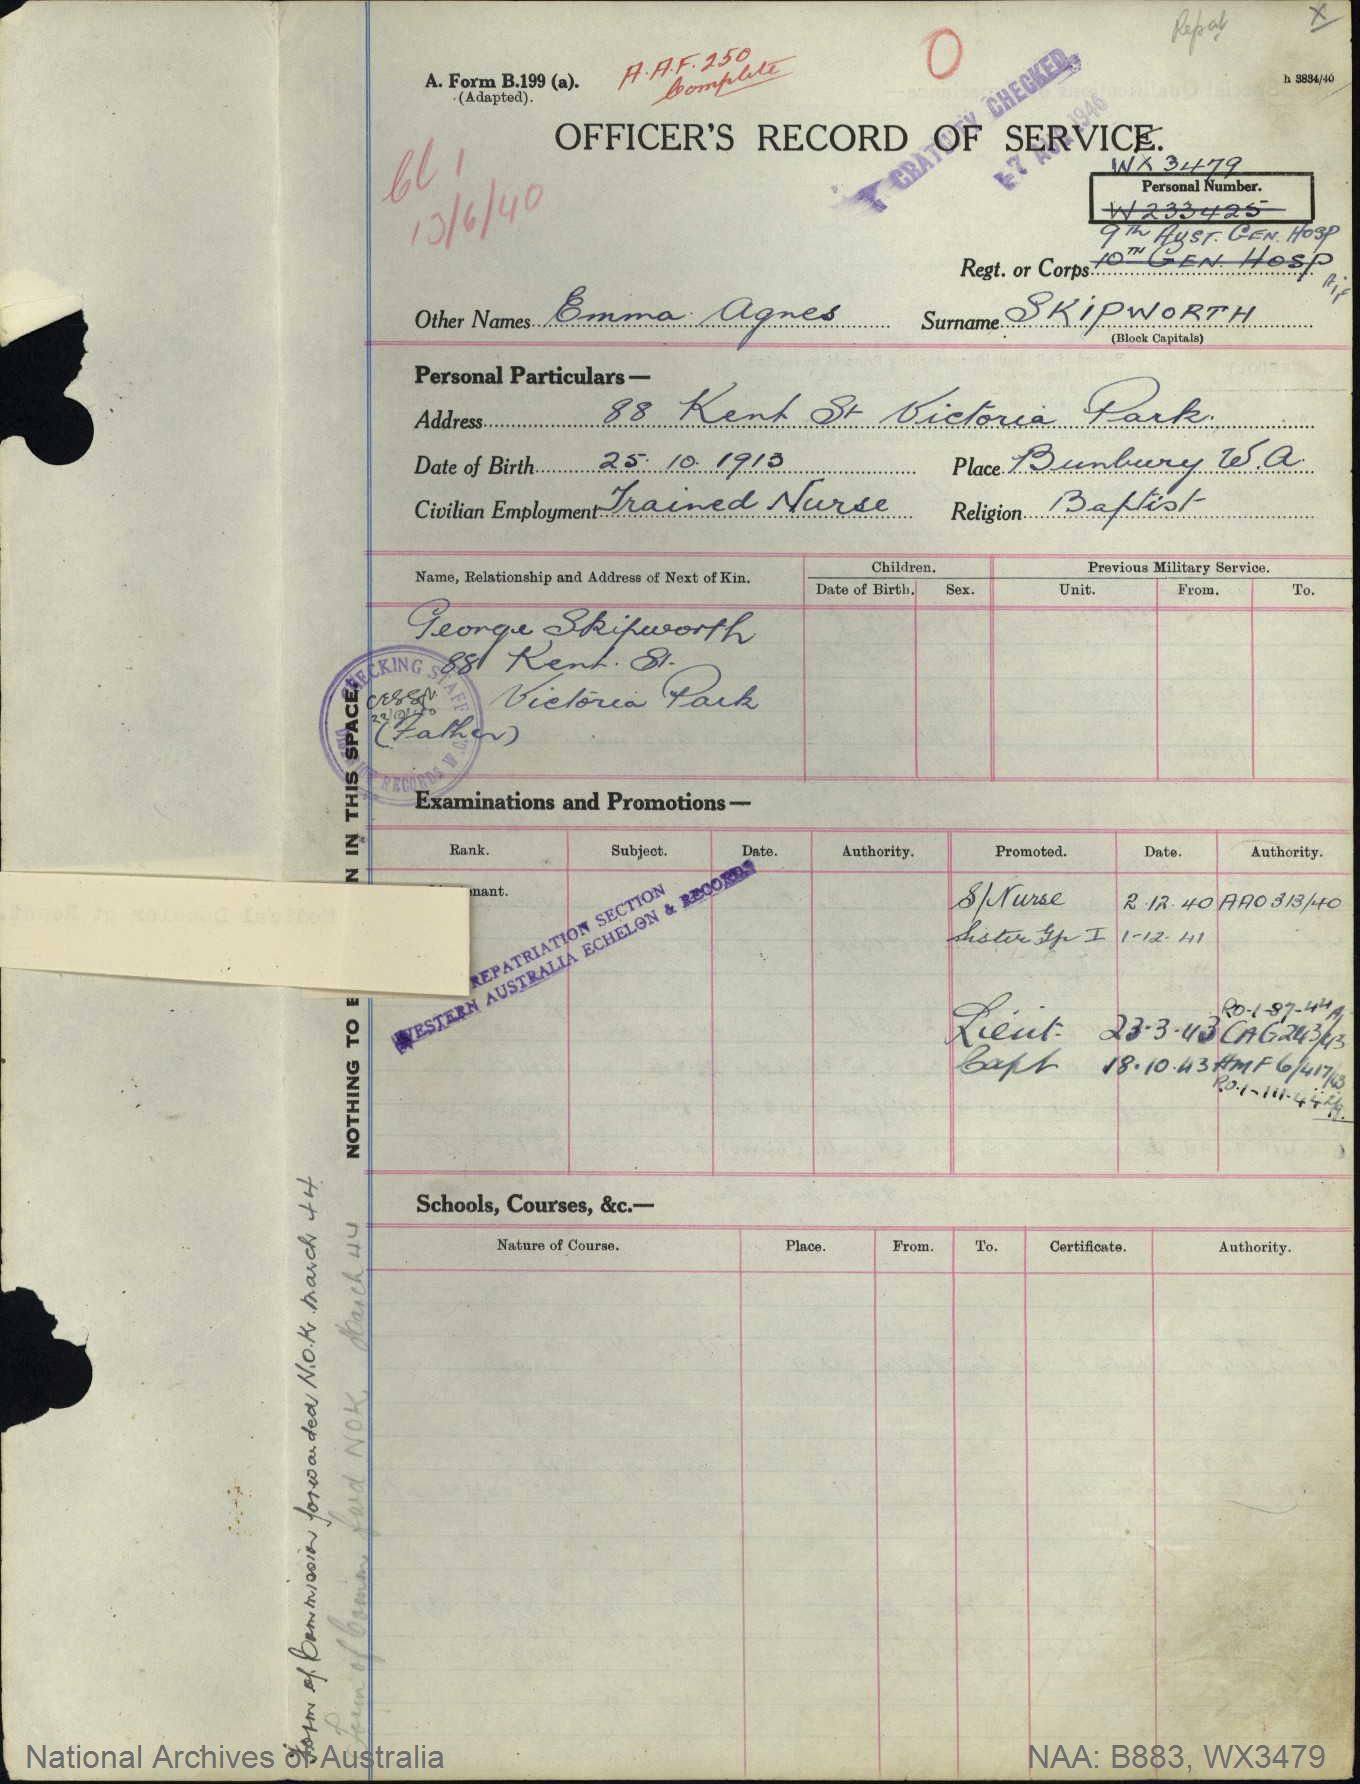 Repat
X
A. Form B.199 (a).
(Adapted).
A.A.F. 250
Complete
O
h 3834/40
GRATUITY CHECKED
7 AUG 1946
OFFICER'S RECORD OF SERVICE.
13/6/40
WX 3479
Personal Number.
W 233425
9TH AUST. GEN. HOSP
Regt. or Corps 10TH GEN. HOSP
AIF
Other Names Emma Agnes Surname SKIPWORTH
(Block Capitals)
Personal Particulars—
Address 88 Kent St Victoria Park.
Date of Birth 25. 10. 1913 Place Bunbury W.A.
Civilian Employment Trained Nurse Religion Baptist
Name, Relationship and Address of Next of Kin. Children. Previous Military Service.
Date of Birth. Sex. Unit. From. To.
George Skipworth
88 Kent. St.
Victoria Park
(Father)
CHECKING STAFF
RECORDS W.C.
Examinations and Promotions—
Rank. Subject. Date. Authority. Promoted. Date. Authority.
S/Nurse 2.12.40 AAO 313/40
Sister Gp I 1-12-41
REPATRIATION SECTION
WESTERN AUSTRALIA ECHELON & RECORDS
R.O-1-87-44
Lieut. 23-3-43 CAG 243/43
Capt 18.10.43 HMF 6/417/43
R.O-1-111-44
NOTHING TO
IN THIS SPACE.
Schools, Courses, &c.—
Nature of Course. Place. From. To. Certificate. Authority.
Form of Commission forwarded N.O.K. March 44
Form of Commn. fwd NOK. March 44
National Archives of Australia
NAA: B883, WX3479